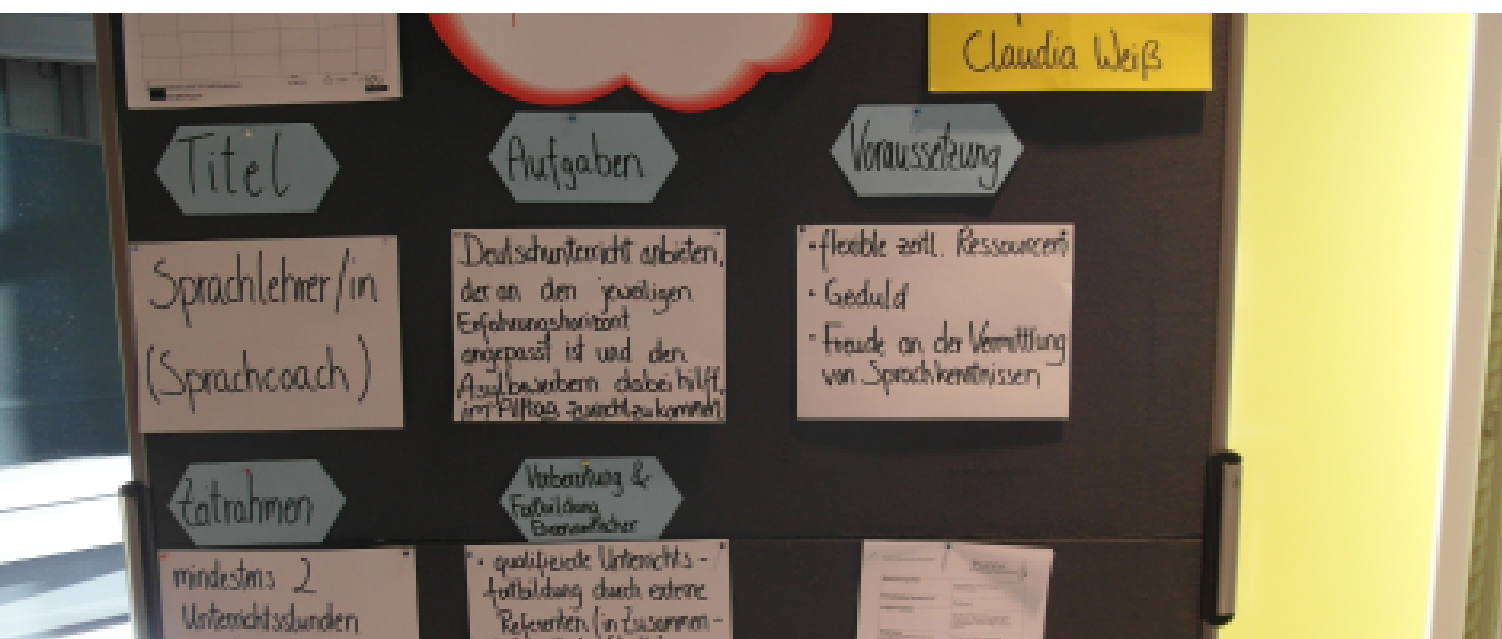 Claudia Weiß
Titel
Aufgaben
Voraussetzung
Sprachlehrer/in
(Sprachcoach)
Deutschunterricht anbieten,
der an den jeweiligen
Erfahrungshorizont
angepasst ist und den
Asylbewerbern dabei hilft,
im Alltag zurechtzukommen
- flexible zeitl. Ressourcen
- Geduld
- Freude an der Vermittlung
von Sprachkenntnissen
Zeitrahmen
Vorbereitung &
Fortbildung
Ehrenamtlicher
mindestens 2
Unterrichtsstunden
• qualifizierte Unterrichts-
fortbildung durch externe
Referenten (in Zusammen-